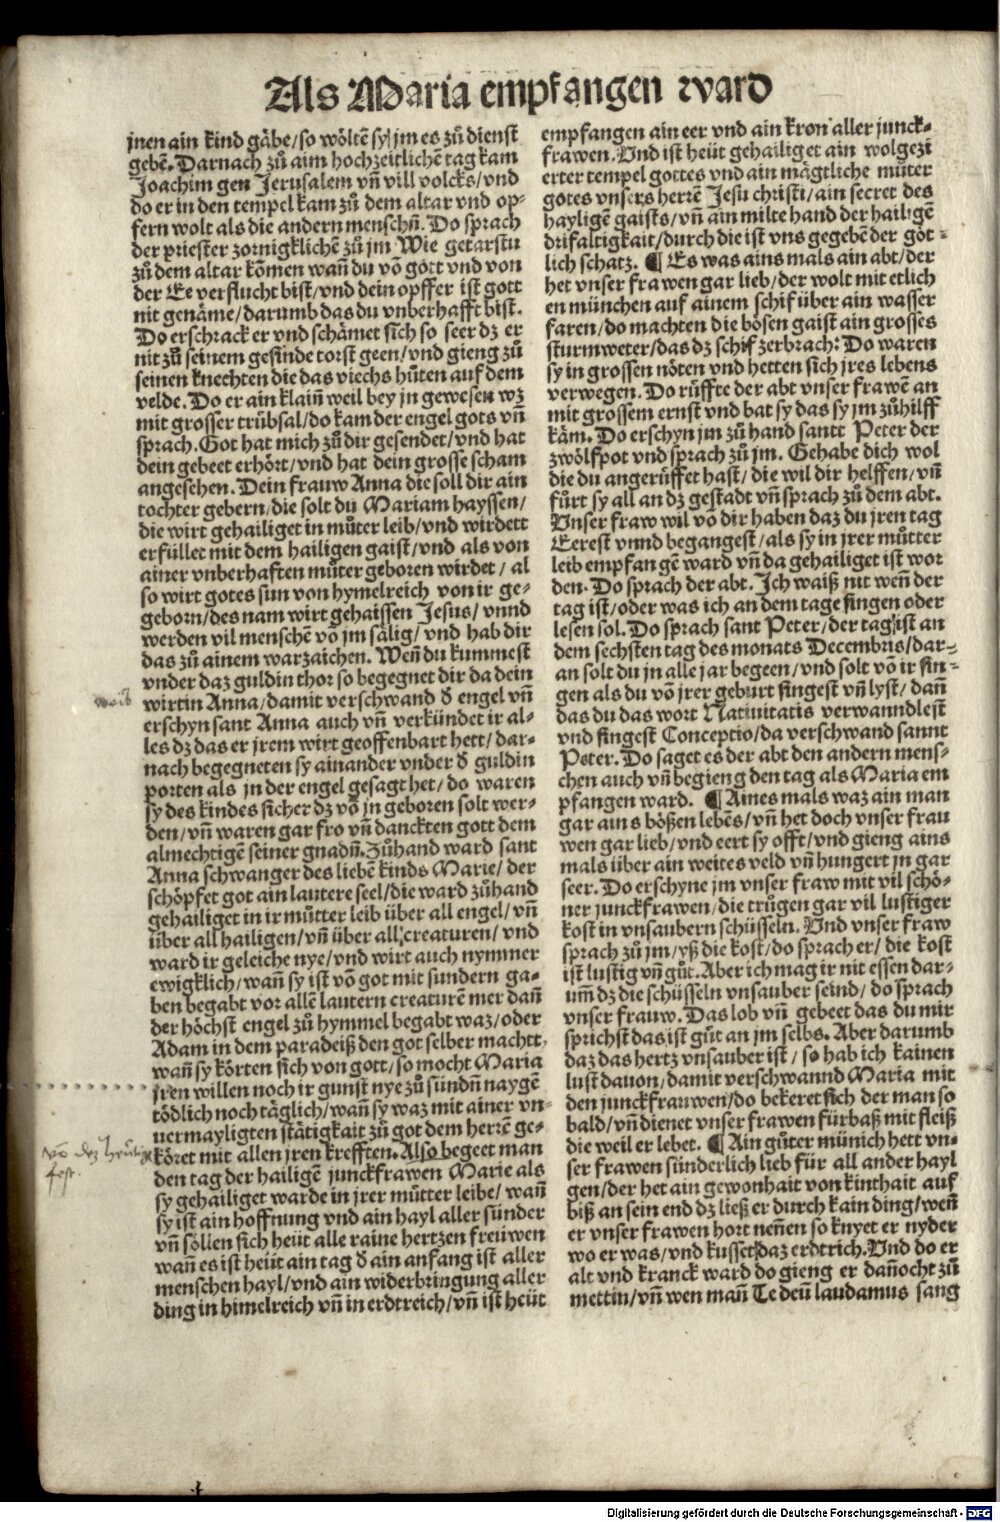 Als Maria empfangen ward
jnen ain kind gäbe/so wöltẽ sy jm es zů dienst
gebẽ. Darnach zů aim hochzeitlichẽ tag kam
Joachim gen Jerusalem vñ vill volcks/vnd
do er in den tempel kam zů dem altar vnd op-
fern wolt als die andern menschñ. Do sprach
der priester zornigklichẽ zů jm Wie getarstu
zů dem altar kõmen wañ du võ gott vnd von
der Ee verflucht bist/vnd dein opffer ist gott
nit genäme/darumb das du vnberhafft bist.
Do erschrack er vnd schämet sich so seer dz er
nit zů seinem gesinde torst geen/vnd gieng zů
seinen knechten die das viechs hůten auf dem
velde. Do er ain klaiñ weil bey jn gewesen wz
mit grosser trübsal/do kam der engel gots vñ
sprach. Got hat mich zů dir gesendet/vnd hat
dein gebeet erhört/vnd hat dein grosse scham
angesehen. Dein frauw Anna die soll dir ain
tochter gebern/die solt du Mariam hayssen/
die wirt gehailiget in můter leib/vnd wirdett
erfüllet mit dem hailigen gaist/vnd als von
ainer vnberhaften můter geboren wirdet/ al
so wirt gotes sun von hymelreich von ir ge-
geborn/des nam wirt gehaissen Jesus/ vnnd
werden vil menschẽ võ jm sälig/ vnd hab dir
das zů ainem warzaichen. Weñ du kummest
vnder daz guldin thor so begegnet dir da dein
wirtin Anna/damit verschwand ð engel vñ
erschyn sant Anna auch vñ verkündet ir al-
les dz das er jrem wirt geoffenbart hett/ dar-
nach begegneten sy ainander vnder ð guldin
porten als jn der engel gesagt het/ do waren
sy des kindes sicher dz võ jn geboren solt wer-
den/vñ waren gar fro vñ danckten gott dem
almechtigẽ seiner gnadñ. Zůhand ward sant
Anna schwanger des liebẽ kinds Marie/ der
schöpfet got ain lautere seel/die ward zůhand
gehailiget in ir můtter leib über all engel/ vñ
über all hailigen/vñ über all creaturen/ vnd
ward ir geleiche nye/vnd wirt auch nymmer
ewigklich/wañ sy ist võ got mit sundern ga-
ben begabt vor allẽ lautern creaturẽ mer dañ
der höchst engel zů hymmel begabt waz/oder
Adam in dem paradeiß den got selber machtt,
wañ sy körten sich von gott/so mocht Maria
jren willen noch ir gunst nye zů sündñ naygẽ
tödlich noch täglich/wañ sy waz mit ainer vn-
uermayligten stätigkait zů got dem herrẽ ge-
köret mit allen jren krefften. Also begeet man
den tag der hailigẽ junckfrawen Marie als
sy gehailiget warde in jrer můtter leibe/ wañ
sy ist ain hoffnung vnd ain hayl aller sünder
vñ söllen sich heüt alle raine hertzen freüwen
wañ es ist heüt ain tag ð ain anfang ist aller
menschen hayl/vnd ain widerbringung aller
ding in himelreich vñ in erdtreich/vñ ist heüt
empfangen ain eer vnd ain kron aller junck-
frawen. Vnd ist heüt gehailiget ain wolgezi
erter tempel gottes vnd ain mägtliche můter
gotes vnsers herrẽ Jesu christi/ain secret des
hayligẽ gaists/vñ ain milte hand der hailigẽ
drifaltigkait/durch die ist vns gegebẽ der göt-
lich schatz. ¶ Es was ains mals ain abt/der
het vnser frawen gar lieb/der wolt mit etlich
en münchen auf ainem schif über ain wasser
faren/do machten die bösen gaist ain grosses
sturmweter/das dz schif zerbrach: Do waren
sy in grossen nöten vnd hetten sich jres lebens
verwegen. Do rüffte der abt vnser frawẽ an
mit grossem ernst vnd bat sy das sy jm zůhilff
käm. Do erschyn jm zů hand santt Peter der
zwölfpot vnd sprach zů jm. Gehabe dich wol
die du angerüffet hast/ die wil dir helffen/vñ
fůrt sy all an dz gestadt vñ sprach zů dem abt.
Vnser fraw wil võ dir haben daz du jren tag
Eerest vnnd begangest/als sy in jrer můtter
leib empfangẽ ward vñ da gehailiget ist wor
den. Do sprach der abt. Ich waiß nit weñ der
tag ist/oder was ich an dem tage singen oder
lesen sol. Do sprach sant Peter/der tag ist an
dem sechsten tag des monats Decembris/dar-
an solt du jn alle jar begeen/vnd solt võ ir sin-
gen als du võ jrer geburt singest vñ lyst/ dañ
das du das wort Natiuitatis verwanndlest
vnd singest Conceptio/da verschwand sannt
Peter. Do saget es der abt den andern mens-
chen auch vñ begieng den tag als Maria em
pfangen ward. ¶ Aines mals waz ain man
gar ains bößen lebẽs/vñ het doch vnser frau
wen gar lieb/vnd eert sy offt/vnd gieng ains
mals über ain weites veld vñ hungert jn gar
seer. Do erschyne jm vnser fraw mit vil schö-
ner junckfrawen/die trůgen gar vil lustiger
kost in vnsaubern schüsseln. Vnd vnser fraw
sprach zů jm/yß die kost/do sprach er/ die kost
ist lustig vñ gůt. Aber ich mag ir nit essen dar-
um̃ dz die schüsseln vnsauber seind/ do sprach
vnser frauw. Das lob vñ gebeet das du mir
sprichst das ist gůt an jm selbs. Aber darumb
daz das hertz vnsauber ist/ so hab ich kainen
lust dauon/damit verschwannd Maria mit
den junckfrauwen/do bekeret sich der man so
bald/vñ dienet vnser frawen fürbaß mit fleiß
die weil er lebet. ¶ Ain gůter münich hett vn-
ser frawen sünderlich lieb für all ander hayl
gen/der het ain gewonhait von kinthait auf
biß an sein end dz ließ er durch kain ding/weñ
er vnser frawen hort neñen so knyet er nyder
wo er was/vnd kusset daz erdtrich. Vnd do er
alt vnd kranck ward do gieng er dañocht zů
mettin/vñ wen mañ Te deũ laudamus sang
Digitalisierung gefördert durch die Deutsche Forschungsgemeinschaft - DFG